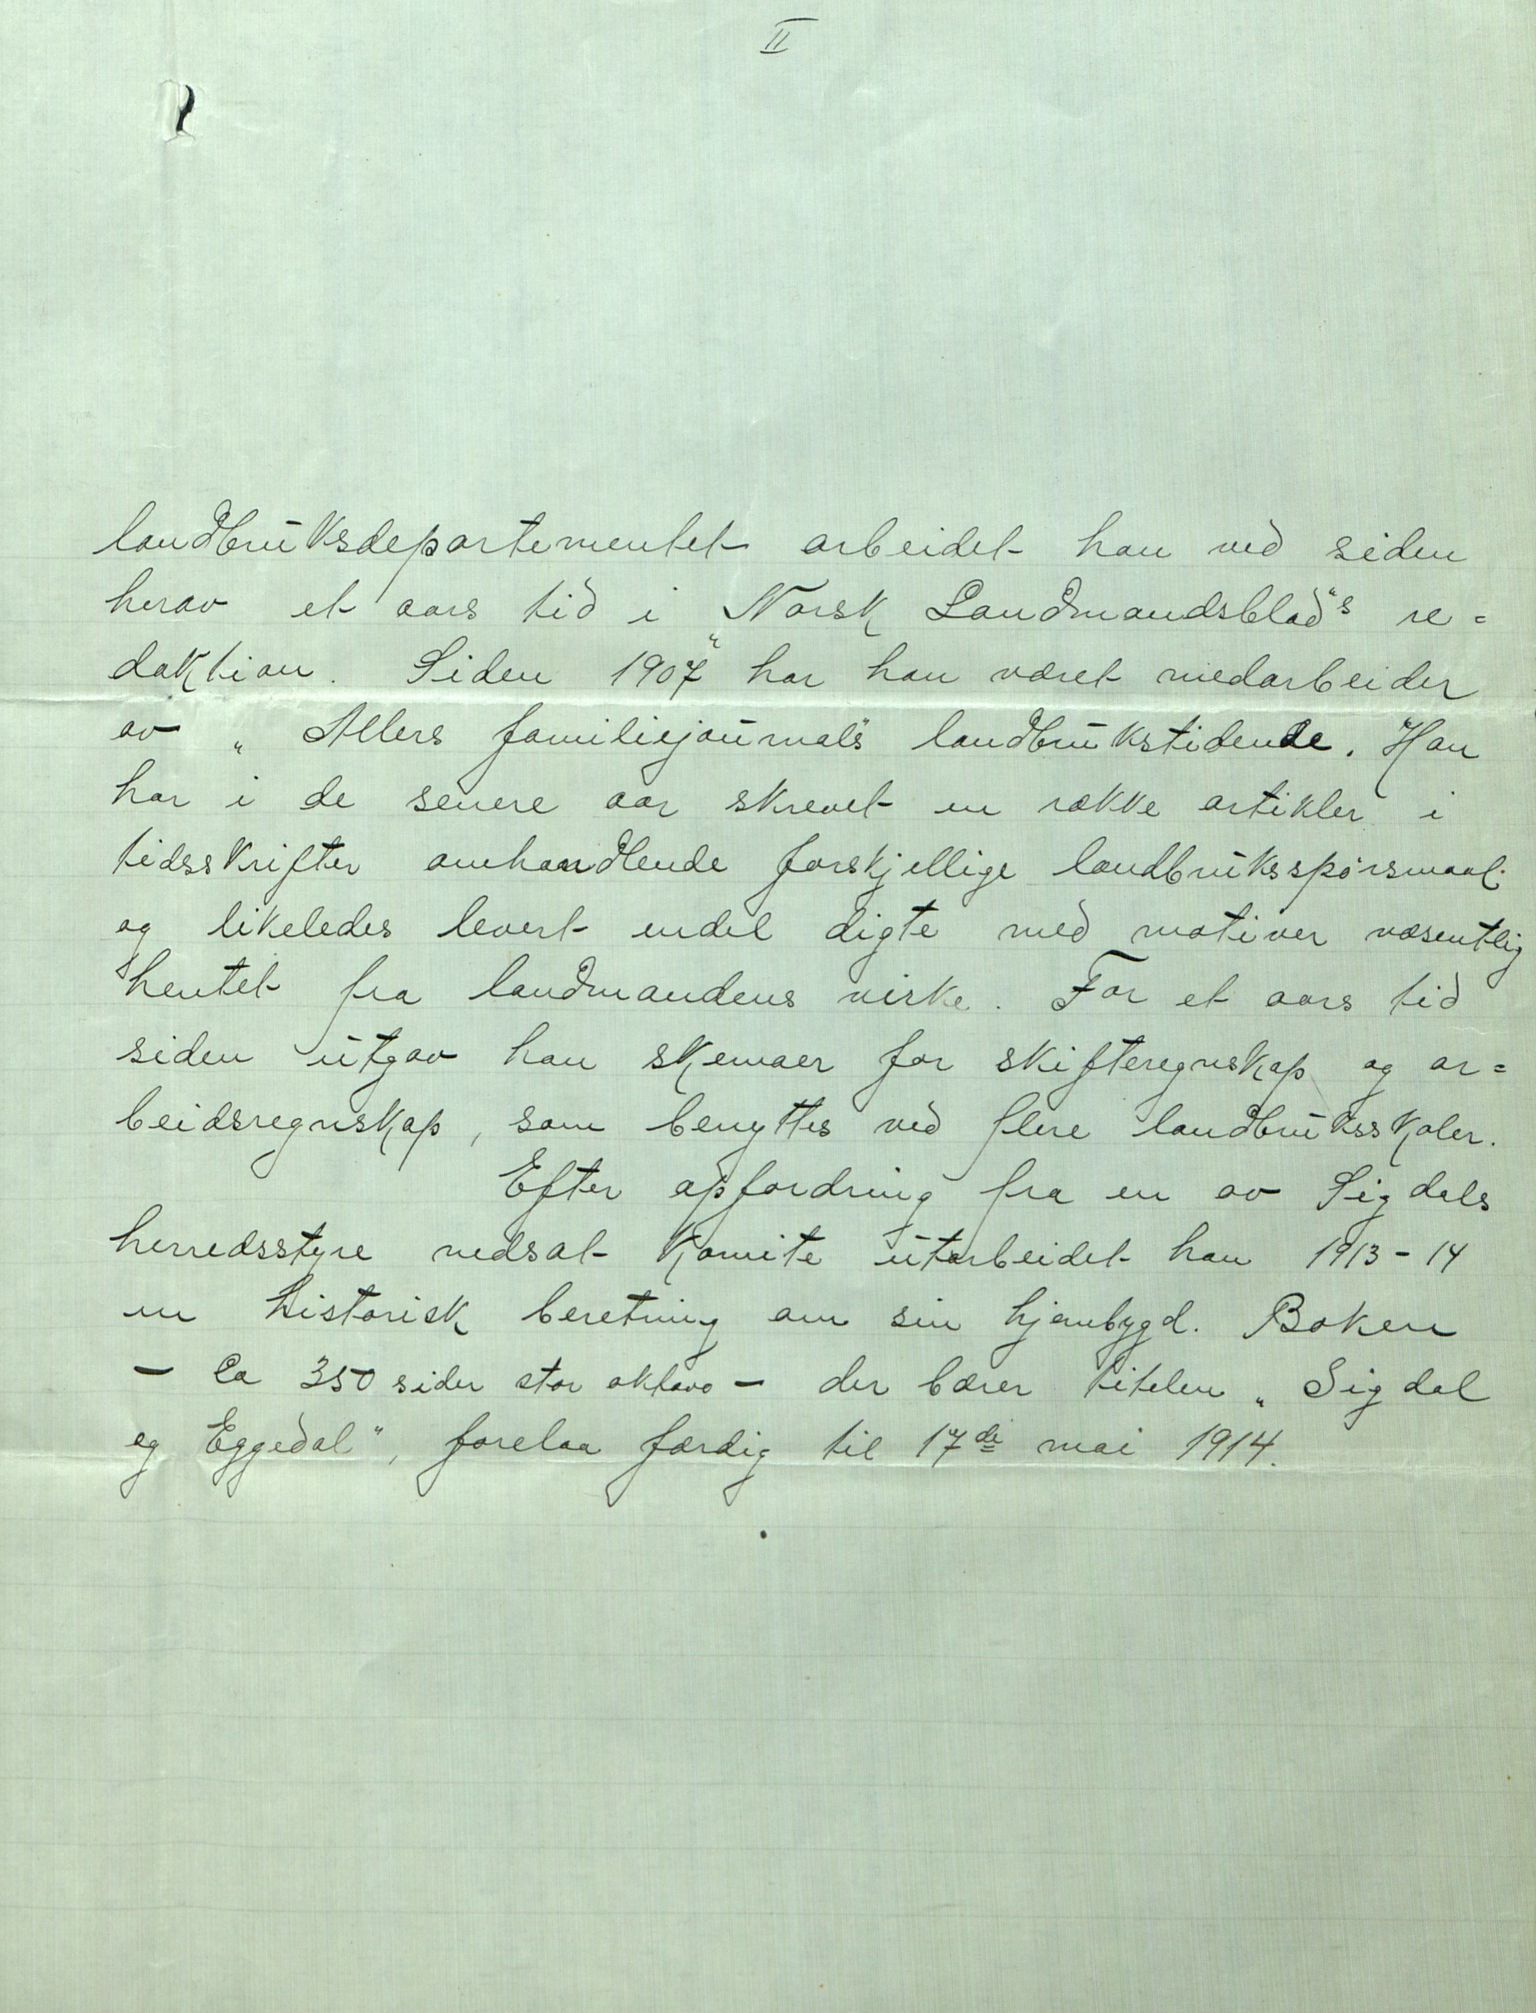 II
landbruksdepartementet arbeidet han ved siden
herav et aars tid i „Norsk Landmandsblad"s re=
daktion. Siden 1907 har han været medarbeider
av „Allers familiejournal"s landbrukstidende. Han
har i de senere aar skrevet en række artikler i
tidsskrifter omhandlende forskjellige landbruksspørsmaal
og likeledes levert endel digte med motiver væsentlig
hentet fra landmandens virke. For et aars tid
siden utgav han skemaer for skifteregnskap og ar=
beidsregnskap, som benyttes ved flere landbruksskoler.
Efter opfordring fra en av Sigdals
herredsstyre nedsat komite utarbeidet han 1913-14
en historisk beretning om sin hjembygd. Boken
- ca 350 sider stor oktavo - der bærer titelen „Sigdal
og Eggedal", forelaa færdig til 17de mai 1914.